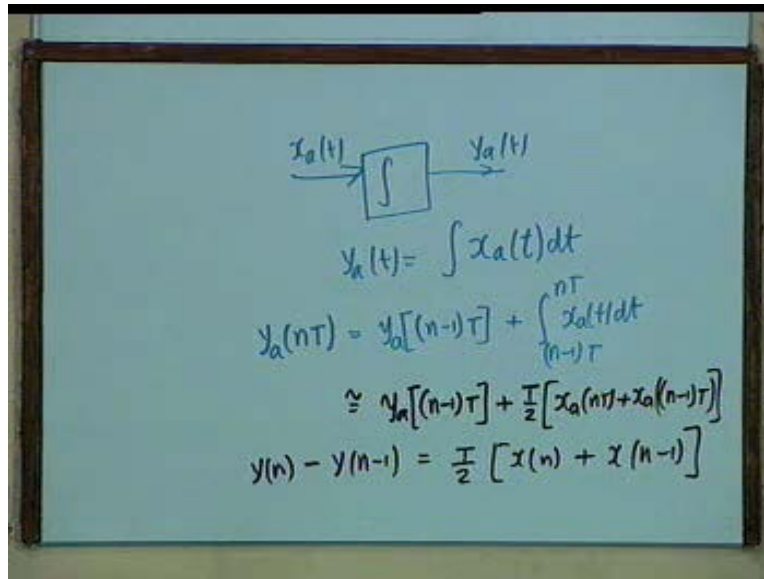 xₐ(t) ∫ yₐ(t)
yₐ(t) = ∫ xₐ(t)dt
yₐ(nT) = yₐ[(n-1)T] + ∫_{(n-1)T}^{nT} xₐ(t)dt
≅ yₐ[(n-1)T] + T/2 [xₐ(nT)+xₐ((n-1)T)]
y(n) - y(n-1) = T/2 [x(n) + x(n-1)]